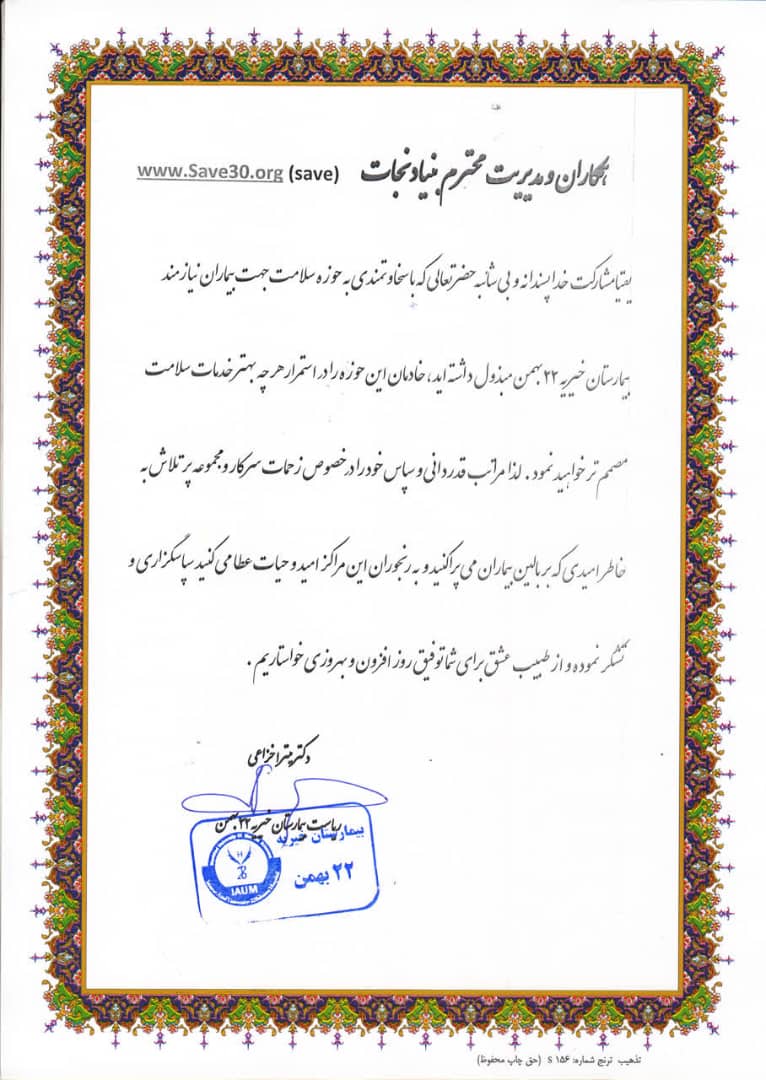 همکاران و مدیریت محترم بنیاد نجات www.Save30.org (save)
یقینا مشارکت خداپسندانه و بی شائبه حضرتعالی که با سخاوتمندی به حوزه سلامت جهت بیماران نیازمند
بیمارستان خیریه ۲۲ بهمن مبذول داشته اید، خادمان این حوزه را در استمرار هر چه بهتر خدمات سلامت
مصمم تر خواهید نمود. لذا مراتب قدردانی و سپاس خود را در خصوص زحمات سرکار و مجموعه پر تلاش به
خاطر امیدی که بر بالین بیماران می پراکنید و به رنجوران این مراکز امید و حیات عطا می کنید سپاسگزاری و
تشکر نموده و از طبیب عشق برای شما توفیق روز افزون و بهروزی خواستاریم.
دکتر میترا خزاعی
ریاست بیمارستان خیریه ۲۲ بهمن
بیمارستان خیریه
۲۲ بهمن
IAUM
تذهیب ترنج شماره: S ۱۵۶ (حق چاپ محفوظ)